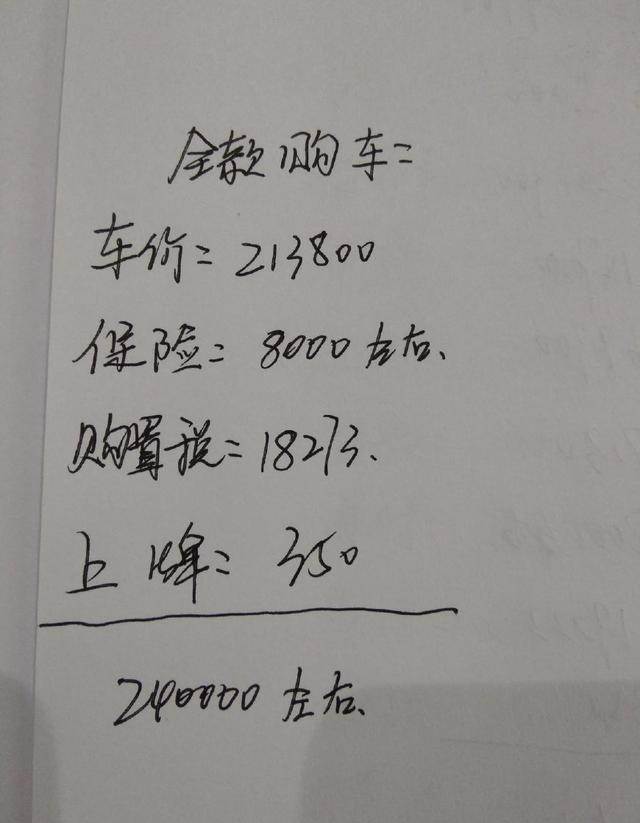 全款购车=
车价=213800
保险=8000左右.
购置税=18273.
上牌=350
240000左右.